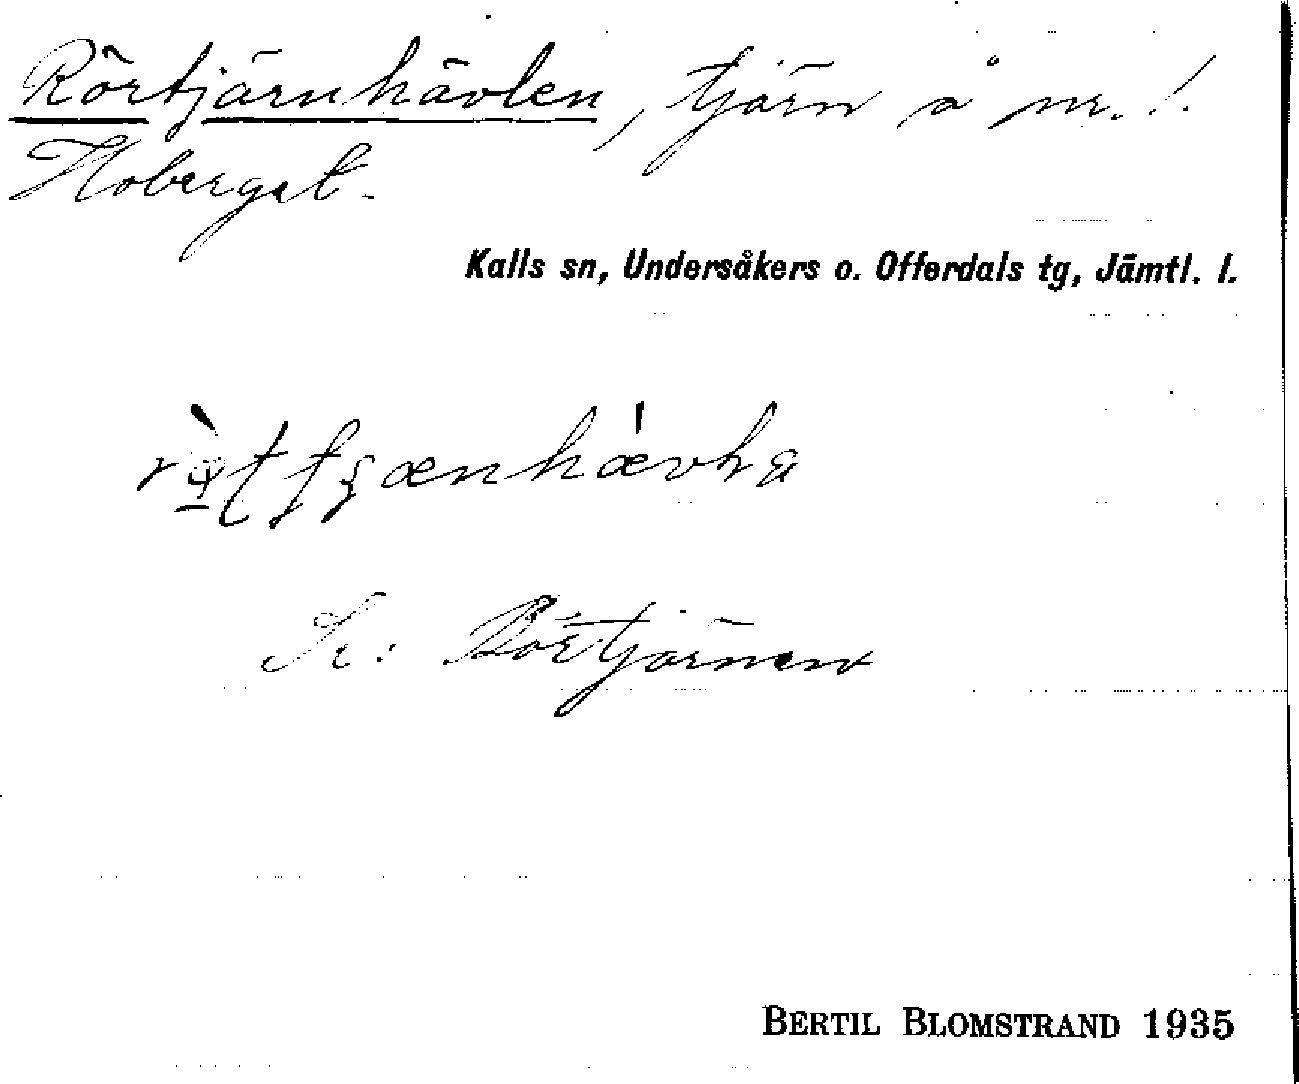 Rörtjärnhävlen, tjärn å nr. 1.
Hoberget.
Kalls sn, Undersåkers o. Offerdals tg, Jämtl. l.
Se: Rörtjärnen
BERTIL BLOMSTRAND 1935